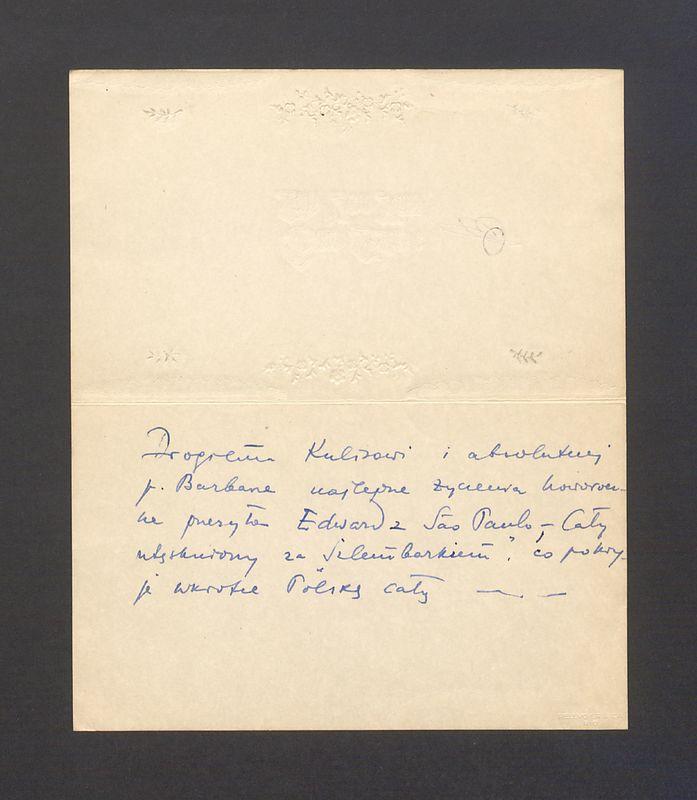 Drogiemu Kulisowi i absolutnej
p. Barbarze najlepsze życzenia noworocz-
ne przesyła Edward z São Paulo, – Cały
utęskniony za "Silembarkiem", co pokry-
je wkrótce Polskę całą — . —